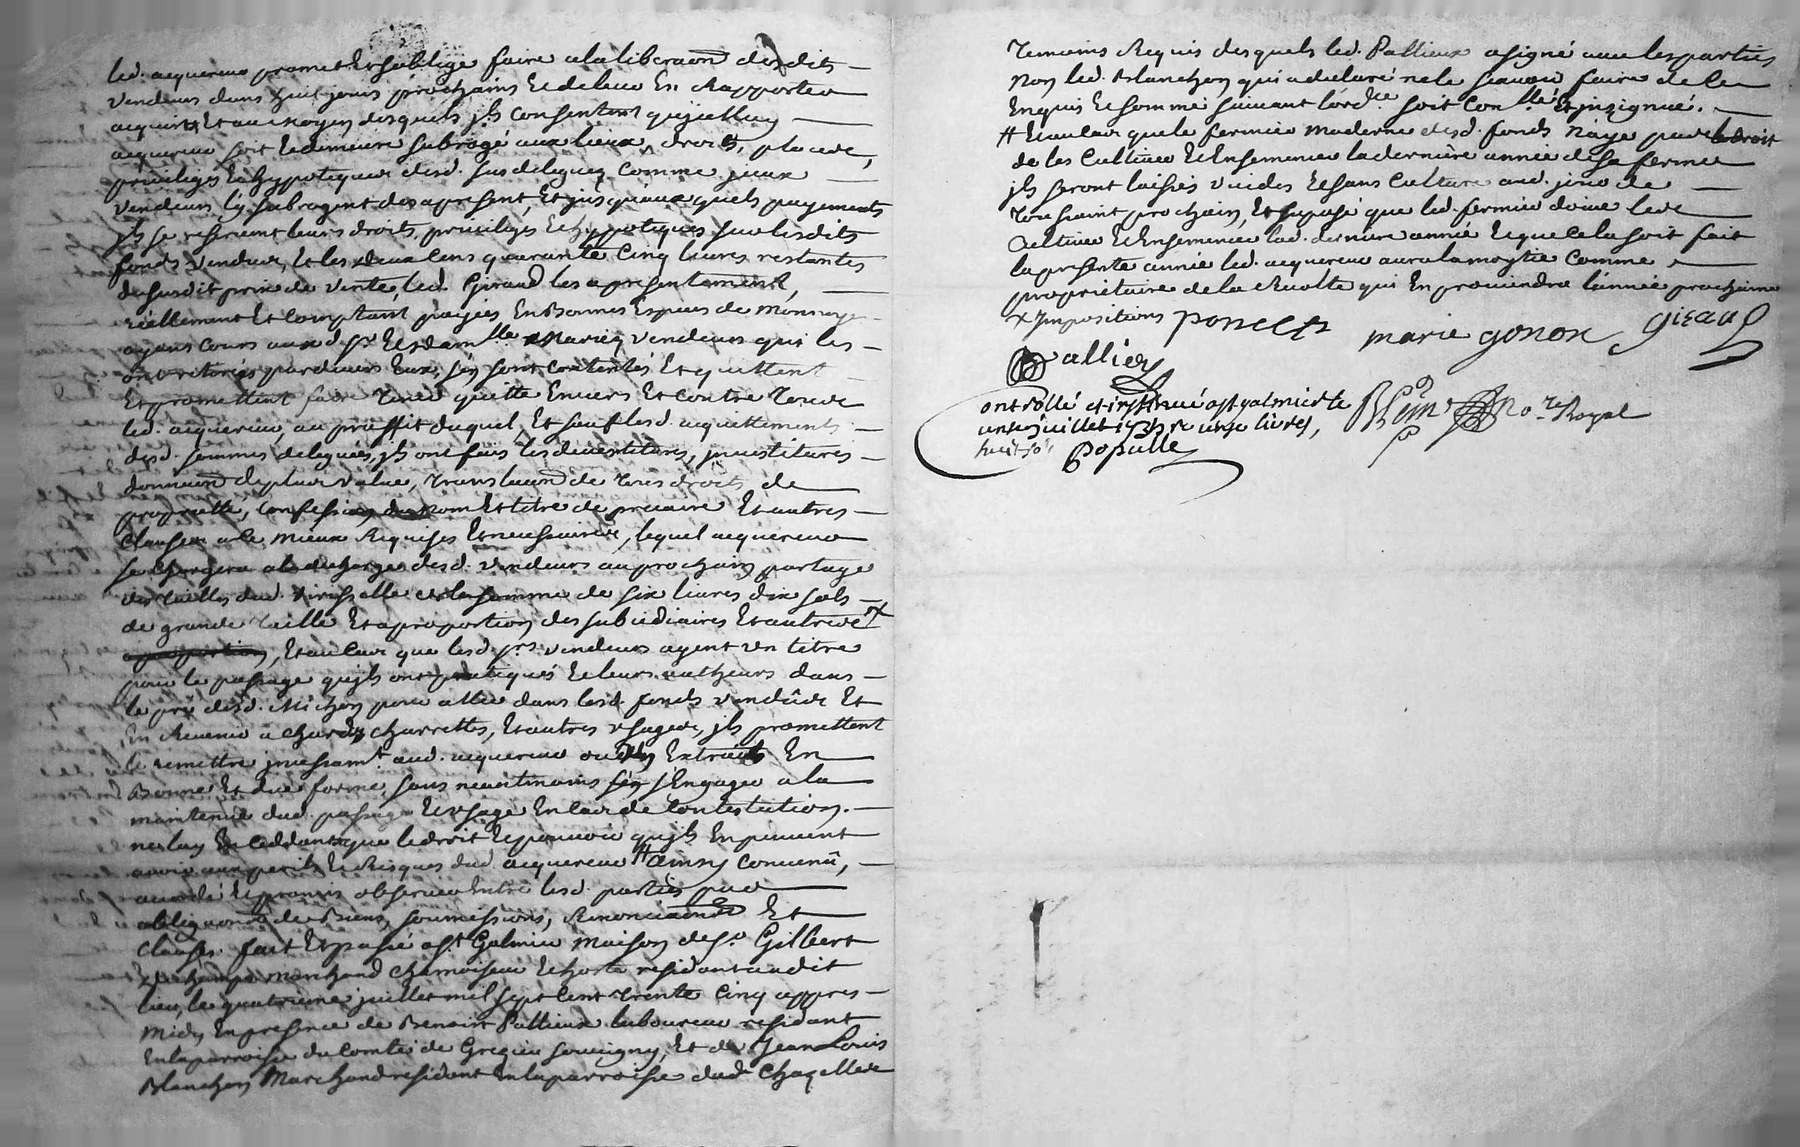 led. acquereur promet Et s'oblige faire a la liberaõn desdits
vendeurs dans huit jours prochains Et deleur En Rapporter
acquits Et au moyen desquels jls consentent qu'jcelluy
acquereur soit Et demeure subrogé aux lieux, droits, places,
privileges Et hypotiques desd. sus deleguez comme jceux
vendeurs l'y subrogent des apresent, Et jusqu'auxquels payements
jls se reservent leurs droits, privileges Et hypotiques sur lesdits
fonds vendus, Et les deux cens quarante Cinq livres restantes
dususdit prix de vente, led. Giraud les a presentement,
réellement Et comptant payées En Bonnes Especes de monnoye
ayans cours auxd. sr Et damlle mariez vendeurs qui les
ont retirées pardevers Eux, s'en sont contentés Et quittent
Et promettent faire tenir quitte Envers Et contre tous
led. acquereur, au proffit duquel, Et sauf lesd. acquittements
desd. sommes deleguées, jls ont fait les devestitures, jnvestitures
donnaõn deplus value, translaõn de tous droits de
propriette, confession du nom Et titre de precaire Et autres
Clauses a le mieux Requises Et necessaires, lequel acquereur
se chargera ala decharge desd. vendeurs au prochain partage
des tailles dud. Virisselle de la somme de six livres dix sols
de grande taille Et aproportion des subsidiaires Et autres x
aproportion, Et au cas que lesd. srs vendeurs ayent un titre
pour le passage qu'jls ont pratiqués Et leurs autheurs dans
le pré desd. Michon pour aller dans lesd. fonds vendûs Et
En Revenir a chards, charrettes, Et autres usages, jls promettent
le remettre jncessamt. aud. acquereur ou des Extraits En
Bonne Et due forme, sans neantmoins s'en s'Engager a la
maintenue dud. passage Et usage En cas de Contestation.
ne luy En ceddant que le droit Et pouvoir qu'jls En peuvent
avoir aux perils Et Risques dud. acquereur # ainsy convenû,
accordé Et promis observer Entre lesd. parties par
obligaõns de Biens, soumissions, Renonciaõns Et
Clauses. fait Et passé a st. Galmier maison de sr. Gilbert
marchand chamoiseur Et hoste residant audit
lieu, le quatrieme juillet mil sept cent trente Cinq appres
midy En presence de Benoist Pallieux laboureur residant
En la parroisse du Comté de Grezieu souvigny, Et de Jean Louis
Blanchon Marchand residant En la parroisse dud. Chazelles
temoins Requis desquels led. Pallieux a signé avec les parties
Non led. Blanchon qui a declaré ne le scavoir faire de ce
Enquis Et sommé suivant l'ordce soit conllé Et jnsignué.
# Et au cas que le fermier moderne desd. fonds n'aye pas le droit
de les Cultiver Et Ensemencer la derniere année de sa ferme
jls seront laissés vuides Et sans Culture aud. jour de
Toussaint prochain, Et supposé que led. fermier doive les
Cultiver Et Ensemencer lad. derniere année Et que cela soit fait
la presente année led. acquereur aura la moytié comme
proprietaire de la Recolte qui En proviendra l'année prochaine
x Jmpositions poncet marie gonon giraud
Pallieu
ontrollé et insinué a st galmier le
unse juillet 1735 r unse livres,
huit so
Populle
no.re Royal